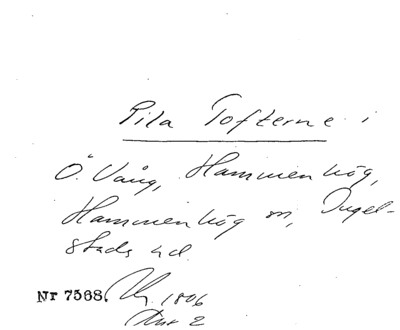 Pila Tofterne i
Ö. Vång, Hammenhög,
Hammenhög sn, Ingel-
stads hd
Nr 7568. 1806
2